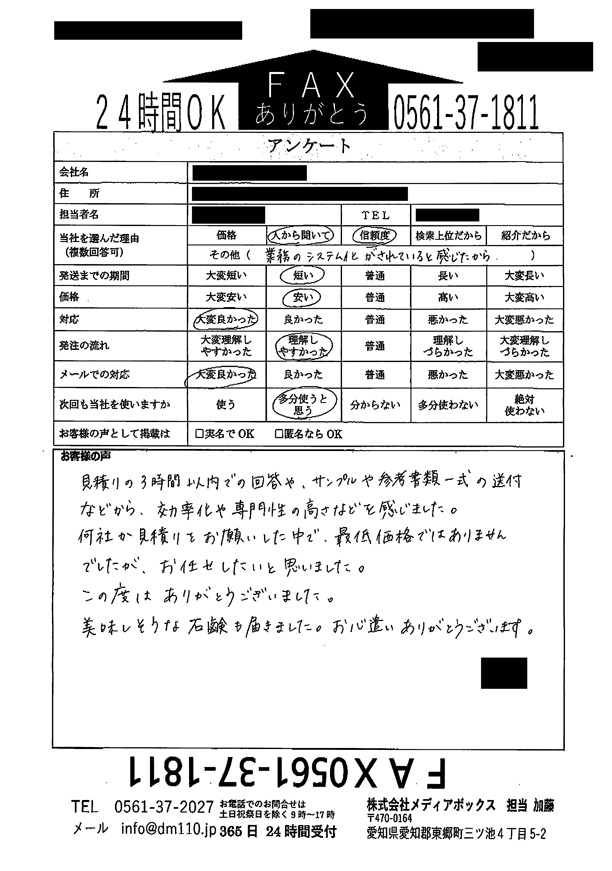 FAX
ありがとう
24時間OK 0561-37-1811
アンケート
会社名
住 所
担当者名 TEL
当社を選んだ理由 (複数回答可) 価格 人から聞いて 信頼度 検索上位だから 紹介だから
その他( 業務のシステム化がされていると感じたから。 )
発送までの期間 大変短い 短い 普通 長い 大変長い
価格 大変安い 安い 普通 高い 大変高い
対応 大変良かった 良かった 普通 悪かった 大変悪かった
発注の流れ 大変理解しやすかった 理解しやすかった 普通 理解しづらかった 大変理解しづらかった
メールでの対応 大変良かった 良かった 普通 悪かった 大変悪かった
次回も当社を使いますか 使う 多分使うと思う 分からない 多分使わない 絶対使わない
お客様の声として掲載は □実名でOK □匿名ならOK
お客様の声
見積りの3時間以内での回答や、サンプルや参考書類一式の送付
などから、効率化や専門性の高さなどを感じました。
何社か見積りをお願いした中で、最低価格ではありません
でしたが、お任せしたいと思いました。
この度は ありがとうございました。
美味しそうな石鹸も届きました。お心遣いありがとうございます。
FAX0561-37-1811
TEL 0561-37-2027 お電話でのお問合せは 土日祝祭日を除く9時〜17時
メール info@dm110.jp 365日 24時間受付
株式会社メディアボックス 担当 加藤
〒470-0164
愛知県愛知郡東郷町三ツ池4丁目5-2